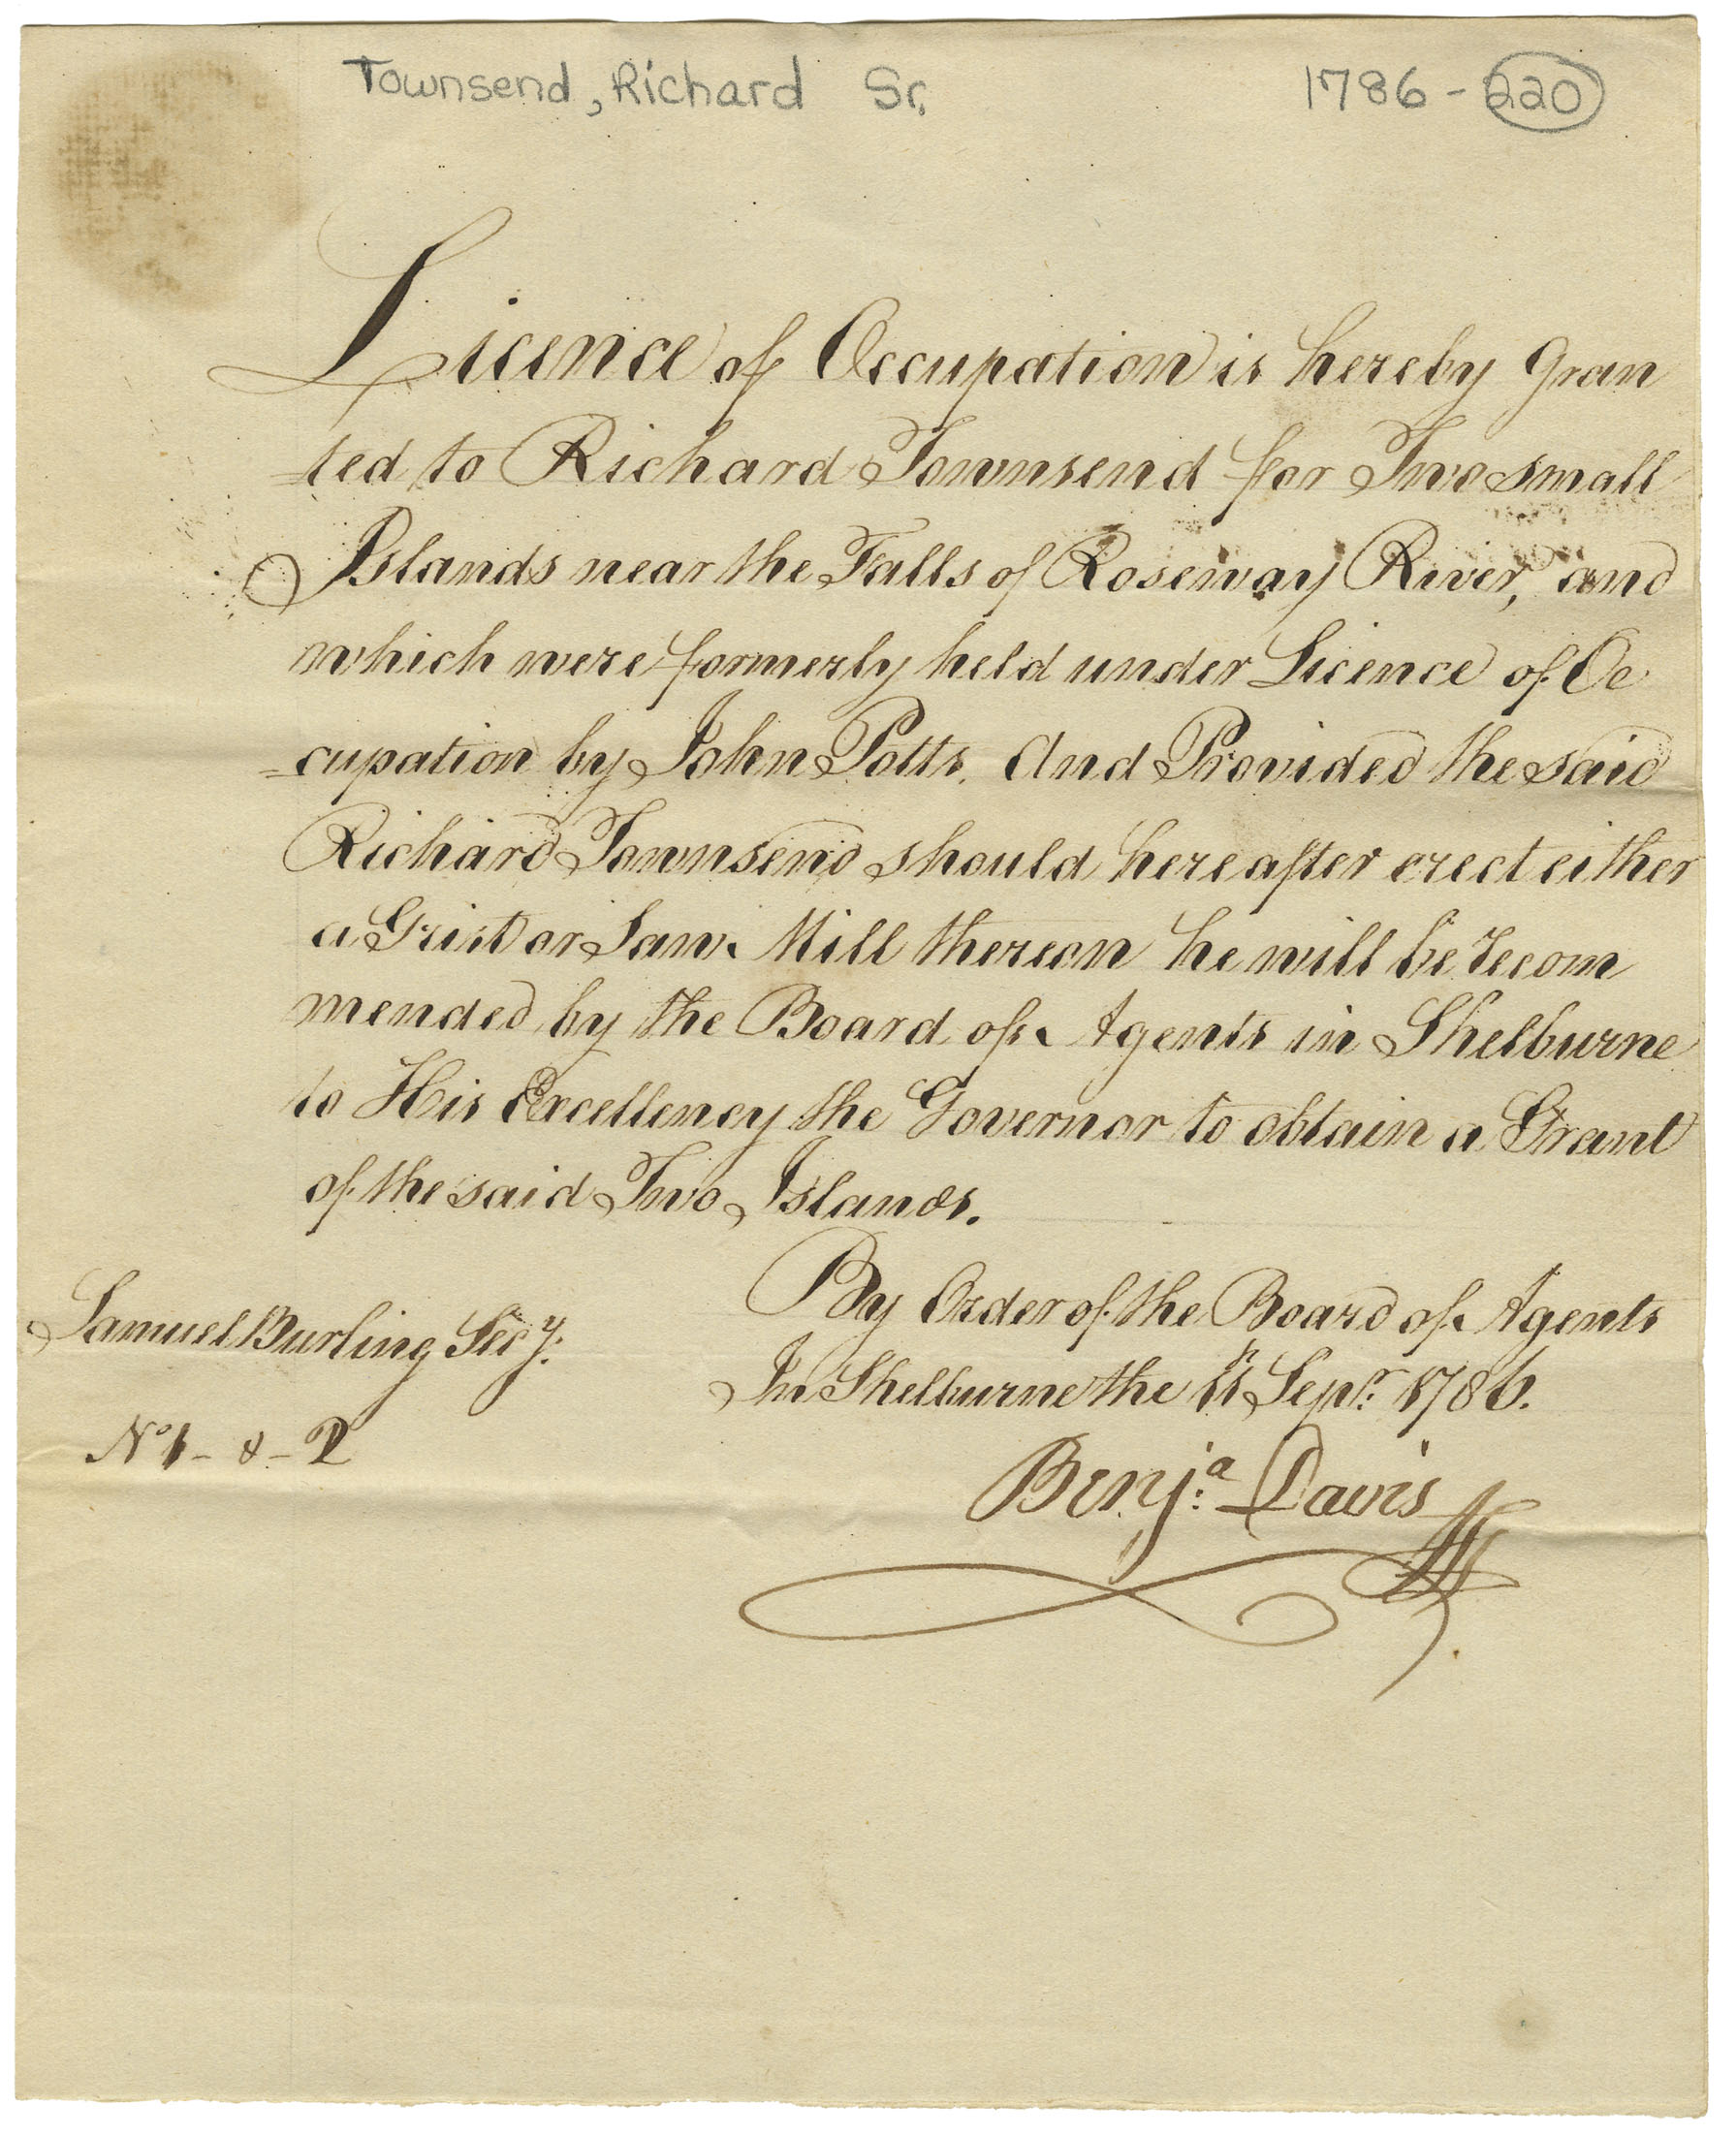 Townsend, Richard Sr. 1786 - 220
Licence of Occupation is hereby Gran
ted to Richard Townsend for Two small
Islands near the Falls of Roseway River, and
which were formerly held under Licence of Oc
=cupation by John Potts. And Provided the said
Richard Townsend should hereafter erect either
a Grist or Saw Mill thereon he will be recom
mended by the Board of Agents in Shelburne
to His Excellency the Governor to obtain a Grant
of the said Two Islands.
By Order of the Board of Agents
In Shelburne the 11th Sepr. 1786.
Samuel Burling Secy.
No 1 - & - 2
Benja. Davis